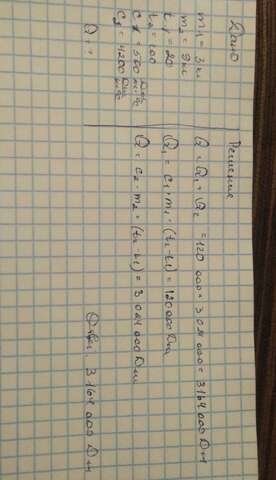 Дано
m1 = 3 кг
m2 = 9 кг
t1 = 20
t2 = 100
c1 = 500 Дж/кг°C
c2 = 4200 Дж/кг°C
Q - ?
Решение
Q = Q1 + Q2 = 120 000 + 3 024 000 = 3164 000 Дж
Q1 = c1 · m1 · (t2 - t1) = 120000 Дж
Q = c2 · m2 = (t2 - t1) = 3 024 000 Дж
Ответ. 3 164 000 Дж